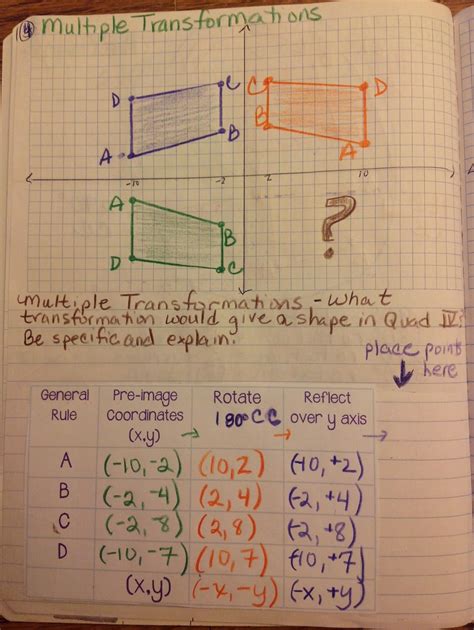 ④ Multiple Transformations
D C C D
B B
A A
-10 -2 2 10
A
B
D C
?
Multiple Transformations - What
transformation would give a shape in Quad IV?
Be specific and explain.
place points
here
General Rule Pre-image Coordinates (x,y) Rotate 180° CC Reflect over y axis
A (-10,-2) (10,2) (-10,+2)
B (-2,-4) (2,4) (-2,+4)
C (-2,-8) (2,8) (-2,+8)
D (-10,-7) (10,7) (-10,+7)
(x,y) (-x,-y) (-x,+y)